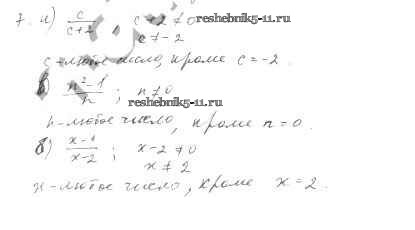 7. а) c/(c+2), c+2 ≠ 0 reshebnik5-11.ru
c ≠ -2
c - любое число, кроме c = -2.
б) (n²-1)/n ; n ≠ 0
reshebnik5-11.ru
n - любое число, кроме n = 0.
в) (x-1)/(x-2) ; x-2 ≠ 0
x ≠ 2
x - любое число, кроме x = 2.